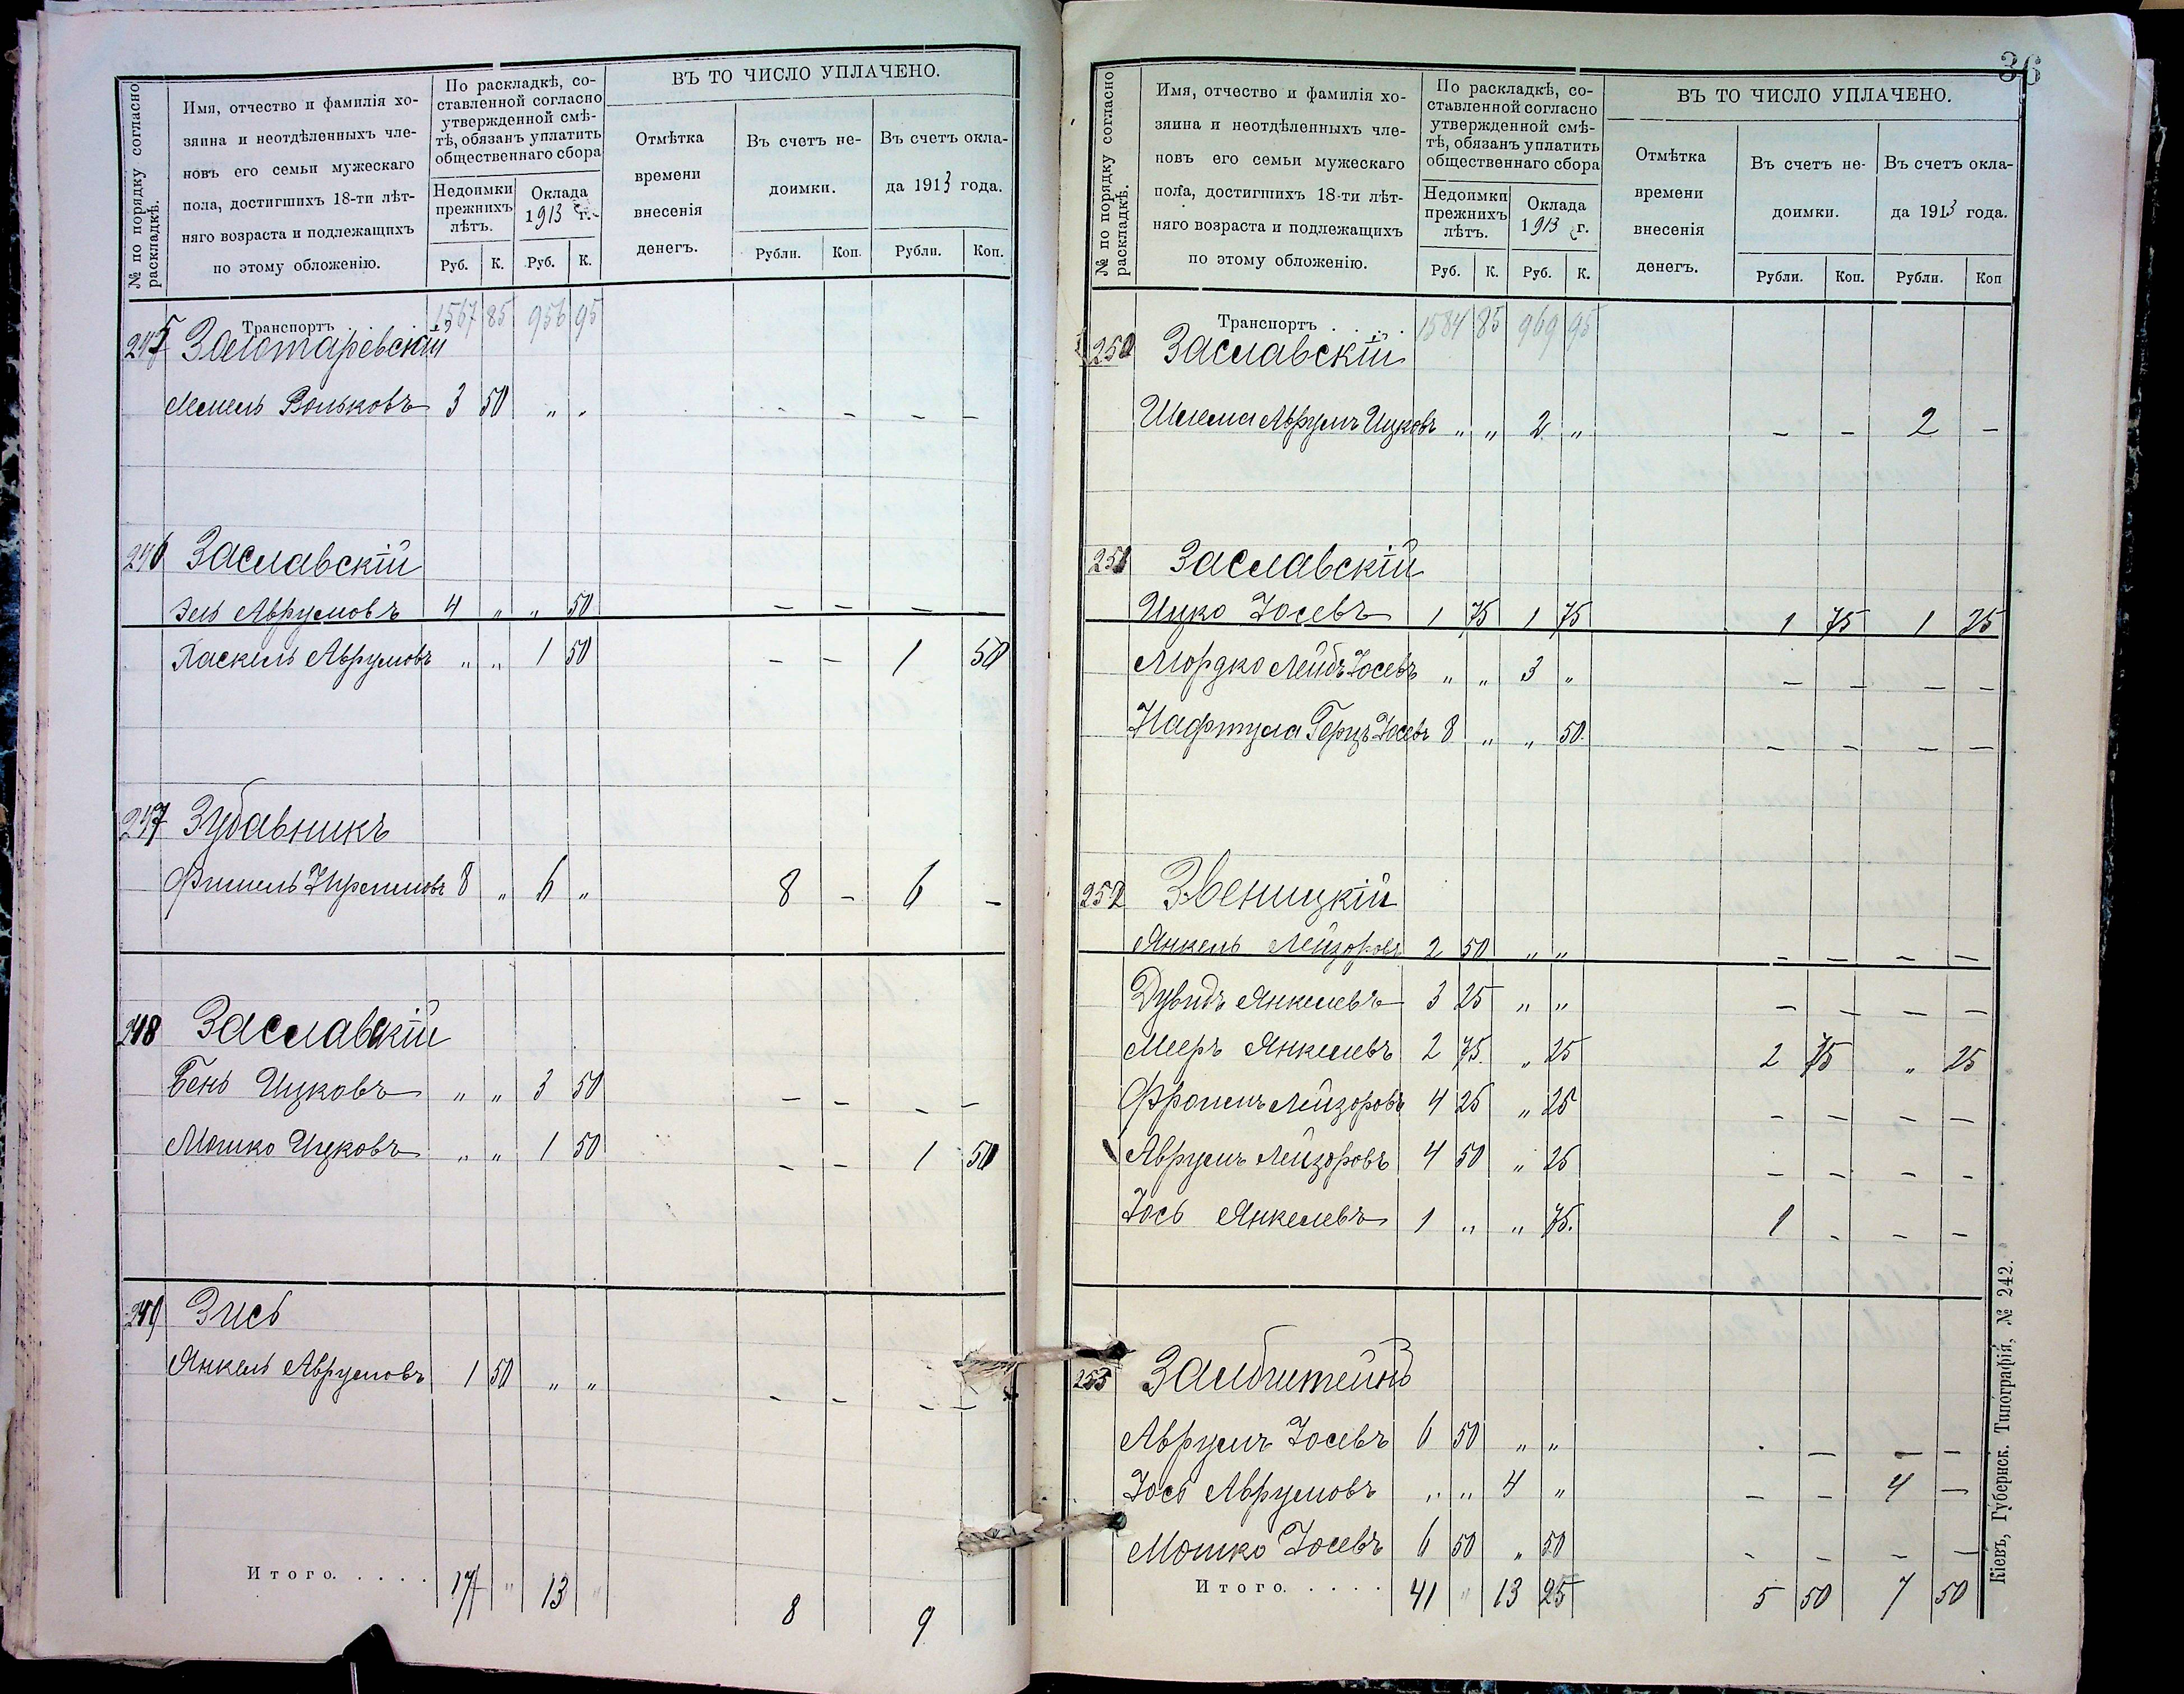 № по порядку согласно
раскладкѣ.
Имя, отчество и фамилія хо-
зяина и неотдѣленныхъ чле-
новъ его семьи мужескаго
пола, достигшихъ 18-ти лѣт-
няго возраста и подлежащихъ
по этому обложенію.
По раскладкѣ, со-
ставленной согласно
утвержденной смѣ-
тѣ, обязанъ уплатить
общественнаго сбора
Недоимки
прежнихъ
лѣтъ.
Оклада
1913 г.
Руб. К. Руб. К.
ВЪ ТО ЧИСЛО УПЛАЧЕНО.
Отмѣтка
времени
внесенія
денегъ.
Въ счетъ не-
доимки.
Въ счетъ окла-
да 1913 года.
Рубли. Коп. Рубли. Коп.
Транспортъ 1567 85 956 95
245 Залотаревскій
Лемель Вольковъ 3 50 „ „ - - - -
246 Заславскій
Эль Аврумовъ 4 „ „ 50 - - - -
Хаскель Аврумовъ „ „ 1 50 - - 1 50
247 Зубавникъ
Фишель Нухимовъ 8 „ 6 „ 8 - 6 -
248 Заславскій
Бень Ицковъ „ „ 3 50 - - - -
Мошко Ицковъ „ „ 1 50 - - 1 50
249 Зись
Янкель Аврумовъ 1 50 „ „ - - - -
Итого..... 17 „ 13 „ 8 9
36
№ по порядку согласно
раскладкѣ.
Имя, отчество и фамилія хо-
зяина и неотдѣленныхъ чле-
новъ его семьи мужескаго
пола, достигшихъ 18-ти лѣт-
няго возраста и подлежащихъ
по этому обложенію.
По раскладкѣ, со-
ставленной согласно
утвержденной смѣ-
тѣ, обязанъ уплатить
общественнаго сбора
Недоимки
прежнихъ
лѣтъ.
Оклада
1913 г.
Руб. К. Руб. К.
ВЪ ТО ЧИСЛО УПЛАЧЕНО.
Отмѣтка
времени
внесенія
денегъ.
Въ счетъ не-
доимки.
Въ счетъ окла-
да 1913 года.
Рубли. Коп. Рубли. Коп
Транспортъ .... 1584 85 969 95
250 Заславскій
Шлема Аврумъ Ицковъ „ „ 2 „ - - 2 -
251 Заславскій
Ицко Іосевъ 1 75 1 75 1 75 1 75
Мордко Лейбъ Іосевъ „ „ 3 „ - - - -
Нафтула Герцъ Іосевъ 8 „ „ 50. - - - -
252 Звеницкій
Янкель Лейзоровъ 2 50 „ „ - - - -
Дувидъ Янкелевъ 3 25 „ „ - - - -
Мееръ Янкелевъ 2 75. „ 25 2 75 „ 25
Фроимъ Лейзоровъ 4 25 „ 25 - - - -
Аврумъ Лейзоровъ 4 50 „ 25 - - - -
Іось Янкелевъ 1 „ „ 75. 1 - - -
253 Залбштейнъ
Аврумъ Іосевъ 6 50 „ „ - - - -
Іось Аврумовъ „ „ 4 „ - - 4 -
Мошко Іосевъ 6 50 „ 50 - - - -
Итого..... 41 „ 13 25 5 50 7 50
Кіевъ, Губернск. Типографія, № 242.